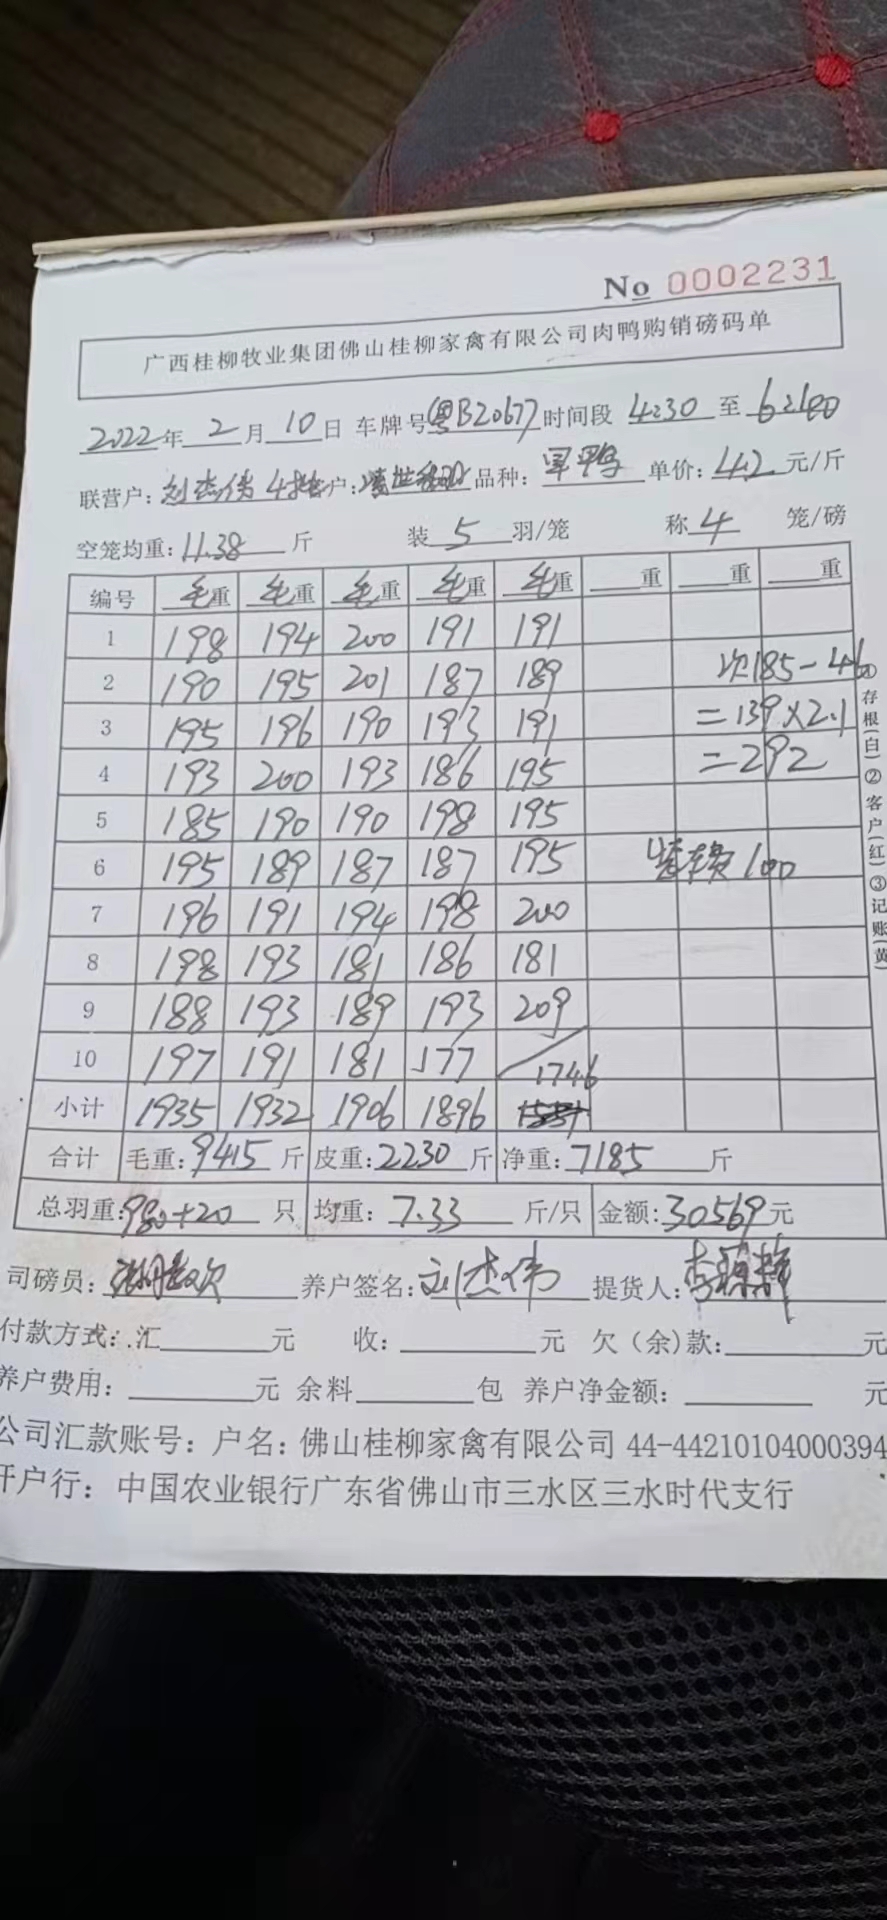 No 0002231
广西桂柳牧业集团佛山桂柳家禽有限公司肉鸭购销磅码单
2022年 2月 10日 车牌号 粤B20677 时间段 4:30 至 6:00
联营户: 刘杰伟 户: 品种: 单价: 4.2 元/斤
空笼均重: 11.38 斤 装 5 羽/笼 称 4 笼/磅
编号 毛重 毛重 毛重 毛重 毛重 重 重 重
1 198 194 200 191 191
2 190 195 201 187 189 次185-46
3 195 196 190 193 191 =139×2.1
4 193 200 193 186 195 =292
5 185 190 190 198 195
6 195 189 187 187 195 费100
7 196 191 194 198 200
8 198 193 181 186 181
9 188 193 189 193 209
10 197 191 181 177
小计 1935 1932 1906 1896 1746
合计 毛重: 9415 斤 皮重: 2230 斤 净重: 7185 斤
总羽重: 980+20 只 均重: 7.33 斤/只 金额: 30569 元
司磅员: 养户签名: 刘杰伟 提货人:
付款方式: 汇 元 收: 元 欠(余)款: 元
养户费用: 元 余料 包 养户净金额: 元
公司汇款账号: 户名: 佛山桂柳家禽有限公司 44-44210104000394
开户行: 中国农业银行广东省佛山市三水区三水时代支行
①存根(白)②客户(红)③记账(黄)